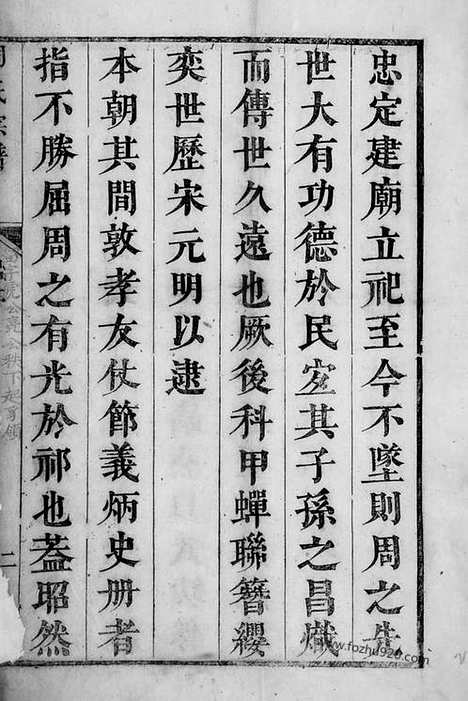 忠定建廟立祀至今不墜則周之先
世大有功德於民宜其子孫之昌熾
而傳世久遠也厥後科甲蟬聯簪纓
奕世歷宋元明以逮
本朝其間敦孝友仗節義炳史册者
指不勝屈周之有光於祁也蓋昭然
氏宗譜
二
www.fozhu920.com